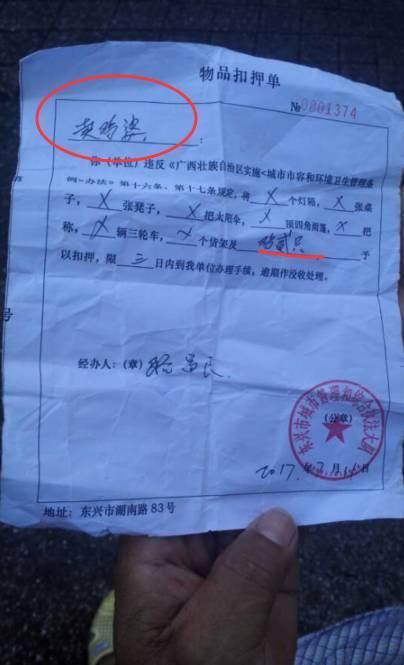 物品扣押单
№0001374
卖鸡婆:
你(单位)违反《广西壮族自治区实施<城市市容和环境卫生管理条
例>办法》第十六条、第十七规定,将 X 个灯箱, X 张桌
子, X 张凳子, X 把太阳伞, X 顶四角雨篷, X 把
称, X 辆三轮车, X 个货架及 鸡贰只 予
以扣押,限 三 日内到我单位办理手续,逾期作没收处理。
经办人:(章)
(公章)
东兴市城市管理综合执法大队
2017年 月 日
地址:东兴市湖南路83号